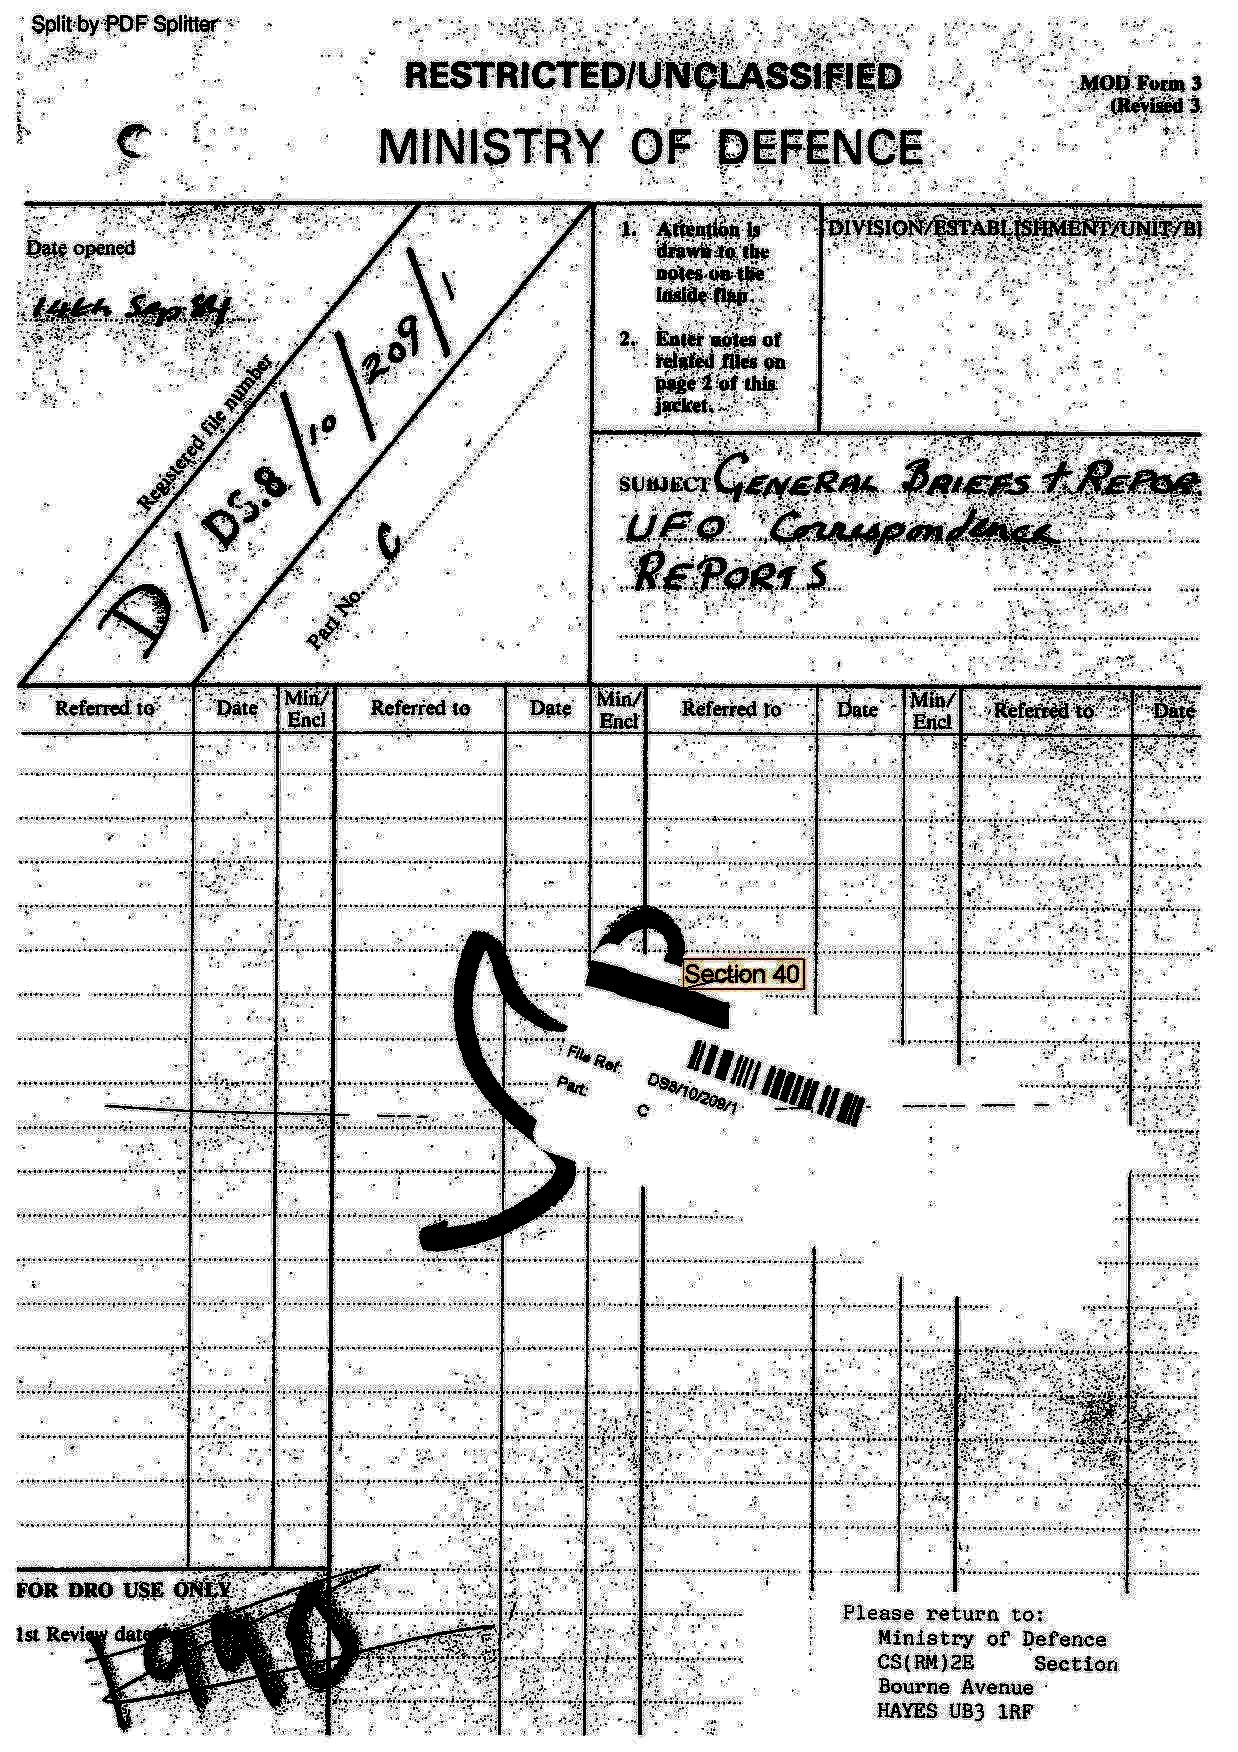 Split by PDF Splitter
RESTRICTED/UNCLASSIFIED
MOD Form 3
(Revised 3
MINISTRY OF DEFENCE
Date opened
14th Sep 84
Registered file number
D/DS.8/10/209/1
Part No. C
1. Attention is
drawn to the
notes on the
inside flap.
2. Enter notes of
related files on
page 2 of this
jacket.
DIVISION/ESTABLISHMENT/UNIT/BI
SUBJECT GENERAL BRIEFS + REPOR
UFO Correspondence
REPORTS
Referred to Date Min/ Encl Referred to Date Min/ Encl Referred to Date Min/ Encl Referred to Date
Section 40
File Ref: DS8/10/209/1
Part: C
FOR DRO USE ONLY
1st Review date
1990
Please return to:
Ministry of Defence
CS(RM)2E Section
Bourne Avenue
HAYES UB3 1RF